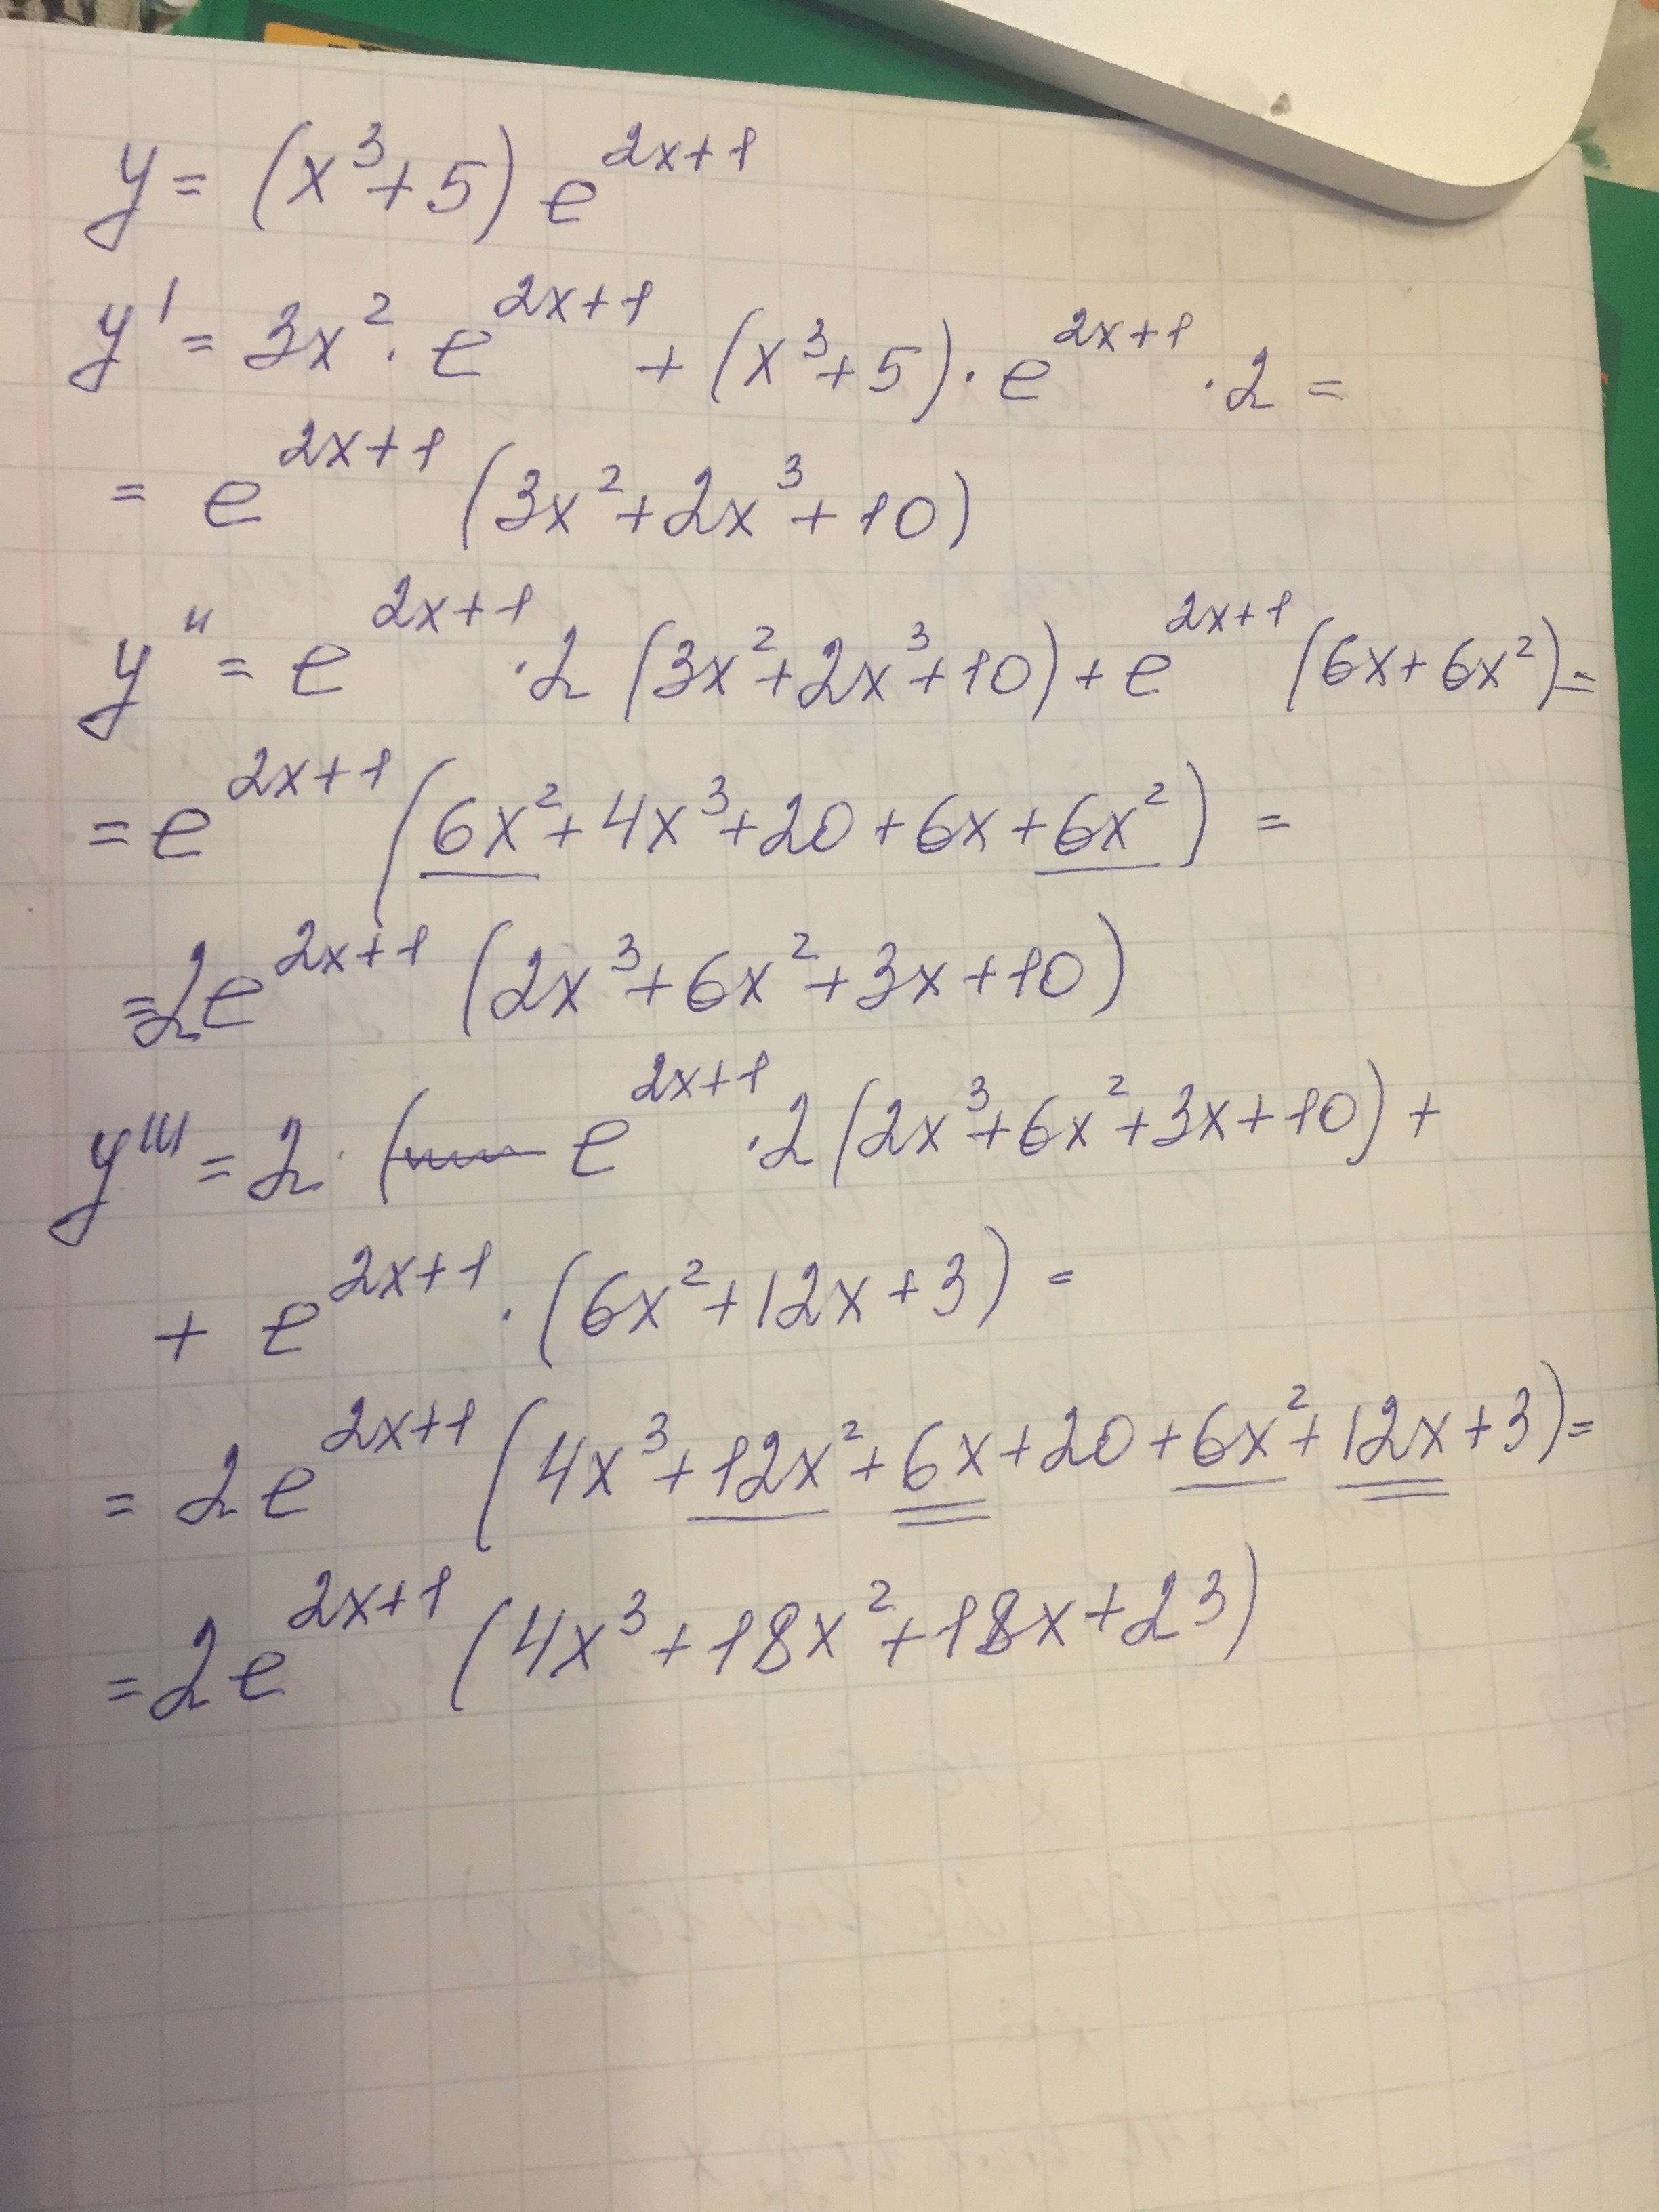 y = (x³+5) e^{2x+1}
y' = 3x² · e^{2x+1} + (x³+5) · e^{2x+1} · 2 =
= e^{2x+1} (3x²+2x³+10)
y'' = e^{2x+1} · 2 (3x²+2x³+10) + e^{2x+1} (6x+6x²) =
= e^{2x+1} (6x²+4x³+20+6x+6x²) =
= 2e^{2x+1} (2x³+6x²+3x+10)
y''' = 2 · ( e^{2x+1} · 2 (2x³+6x²+3x+10) +
+ e^{2x+1} · (6x²+12x+3) =
= 2e^{2x+1} (4x³+12x²+6x+20+6x²+12x+3) =
= 2e^{2x+1} (4x³+18x²+18x+23)